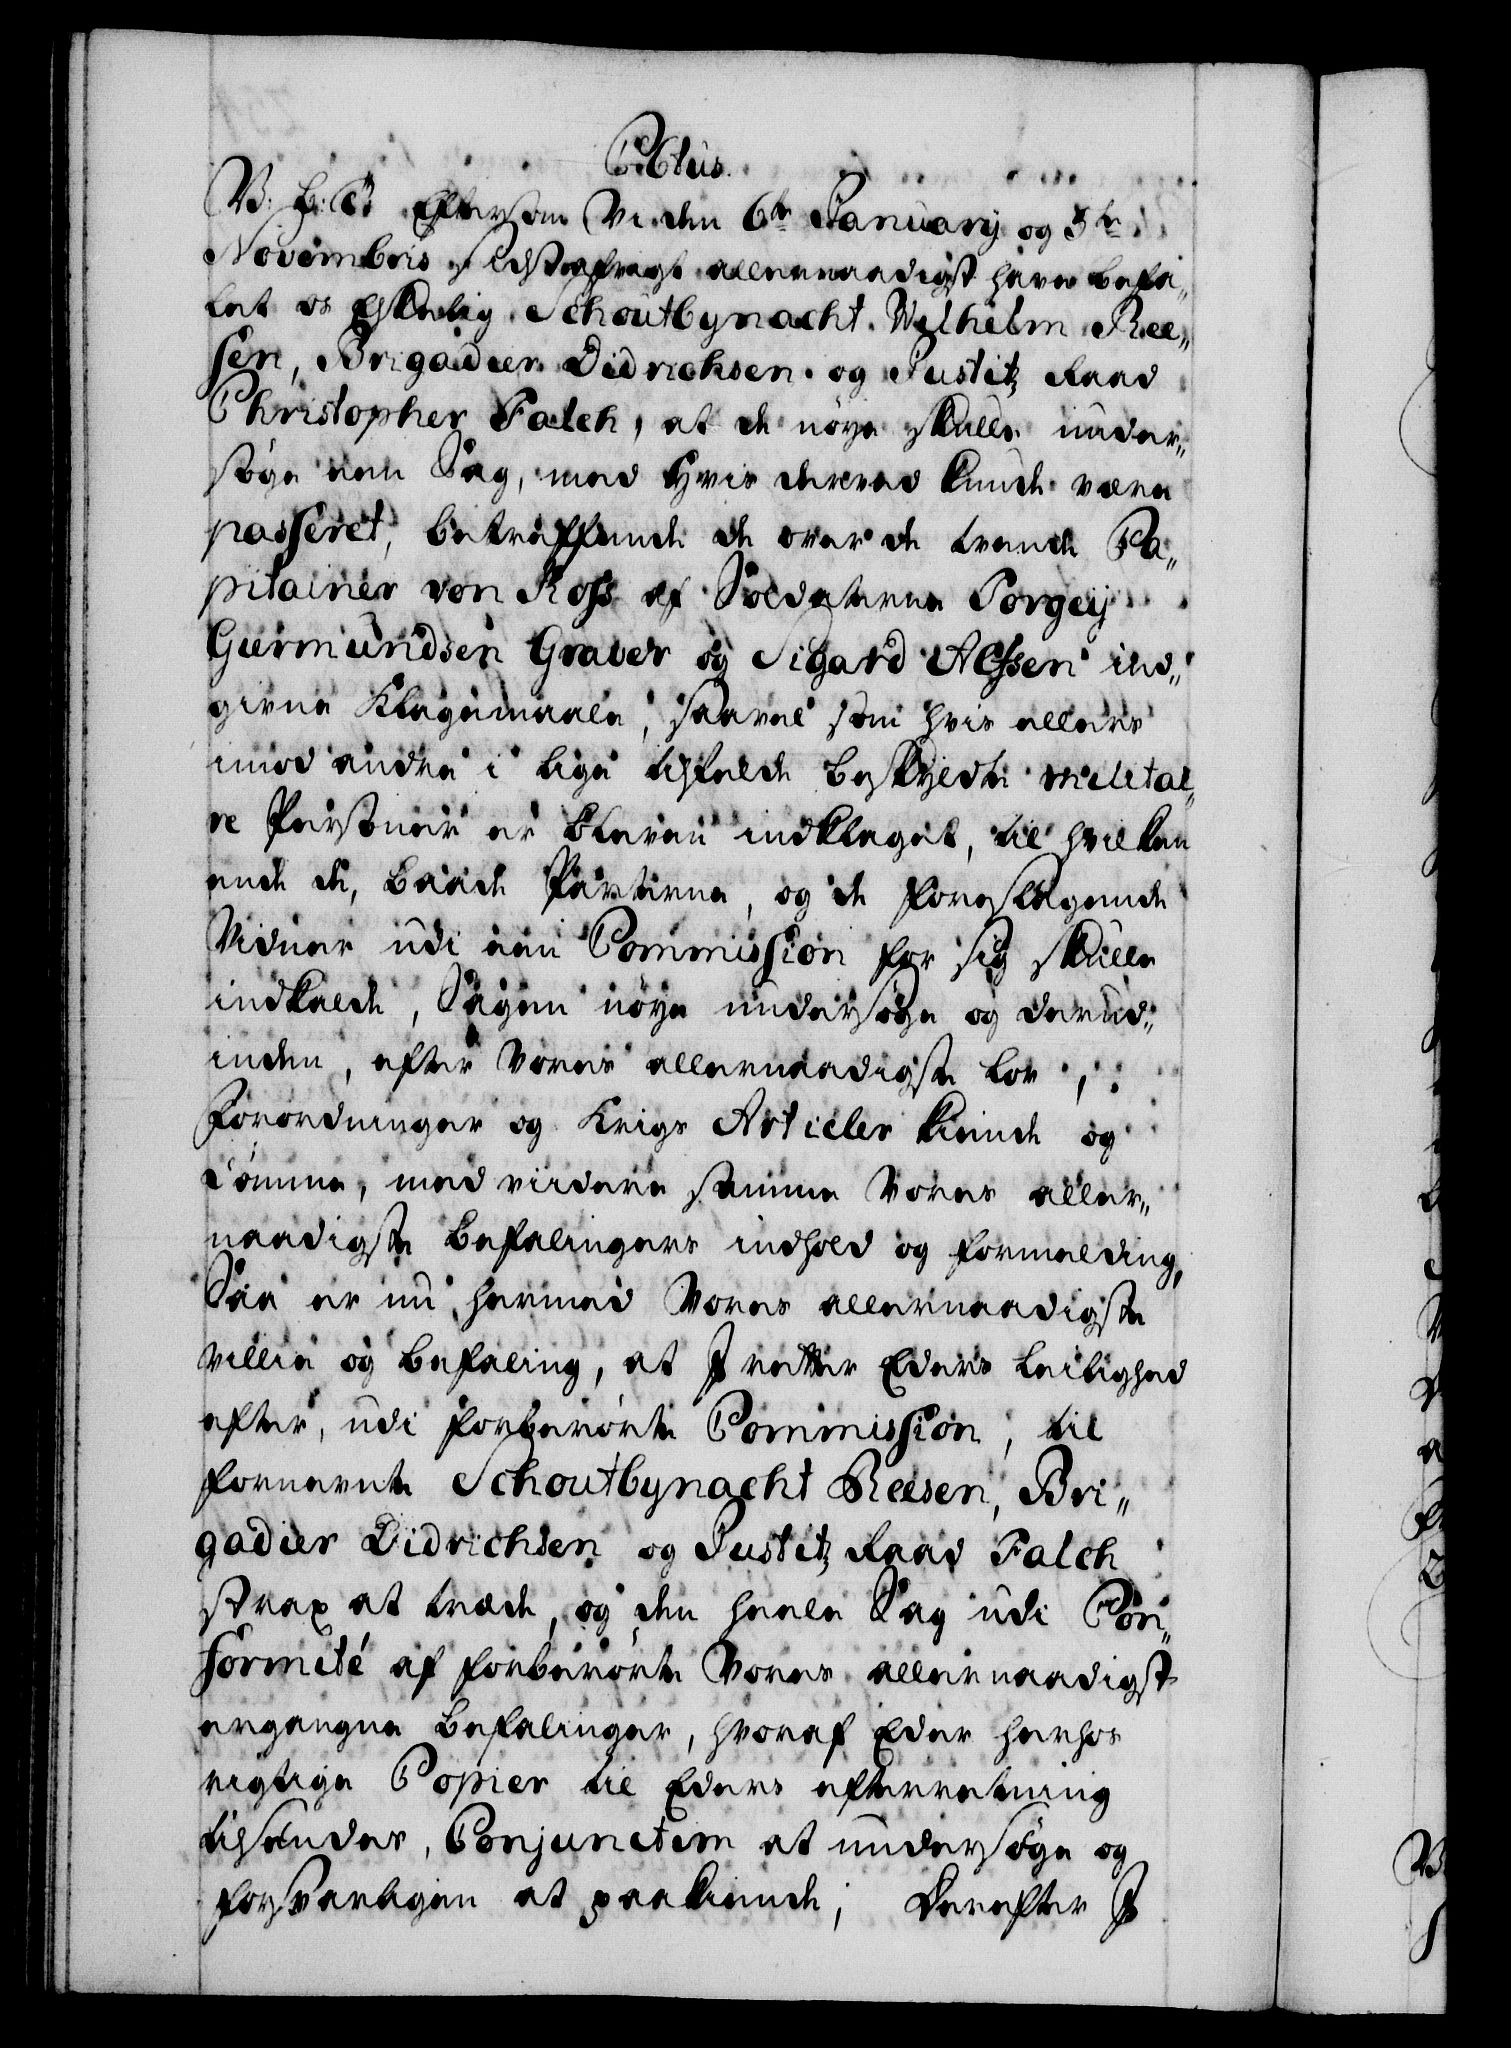 C6tus.
V: G: T: Eftersom Vi den 6te January og 5te
Novembris sidstafvigt allernaadigst have befa„
let os Elskelig Schoutbynacht Wilhelm Ree„
sen, Brigadier Didrichsen og Justitz Raad
Christopher Falch, at de nøye skulle under„
søge een Sag, med hvis derved kunde være
passeret, betreffende de over de tvende Ca„
pitainer von Koss af Soldaterne Torgeij
Giermundsen Graver og Sigard Alfsen ind„
givne Klagemaale, saavel som hvis ellers
imod andre i lige tilfælde beskyldte militai„
re Personer er bleven indklaget, til hvilken
ende de, baade Parterne, og de foreslagende
Vidner udi een Commission for sig skulle
indkalde, Sagen nøye undersøge og derud„
inden, efter Vores allernaadigste Lov,
Forordninger og Krigs Articler kiende og
dømme, med viidere samme Vores aller„
naadigste befalingers indhold og formelding,
Saa er nu hermed Vores allernaadigste
villie og befaling, at I retter Eders leilighed
efter, udi forberørte Commission, til
fornevnte Schoutbynacht Reesen, Bri„
gadier Didrichsen og Justitz Raad Falch
strax at træde, og den heele Sag udi Con„
formité af forberørte Vores allernaadigst
ergangne befalinger, hvoraf Eder herhos
rigtige Copier til Eders efterretning
tilsendes, Conjunctim at undersøge og
forsvarligen at paakiende; Derefter I